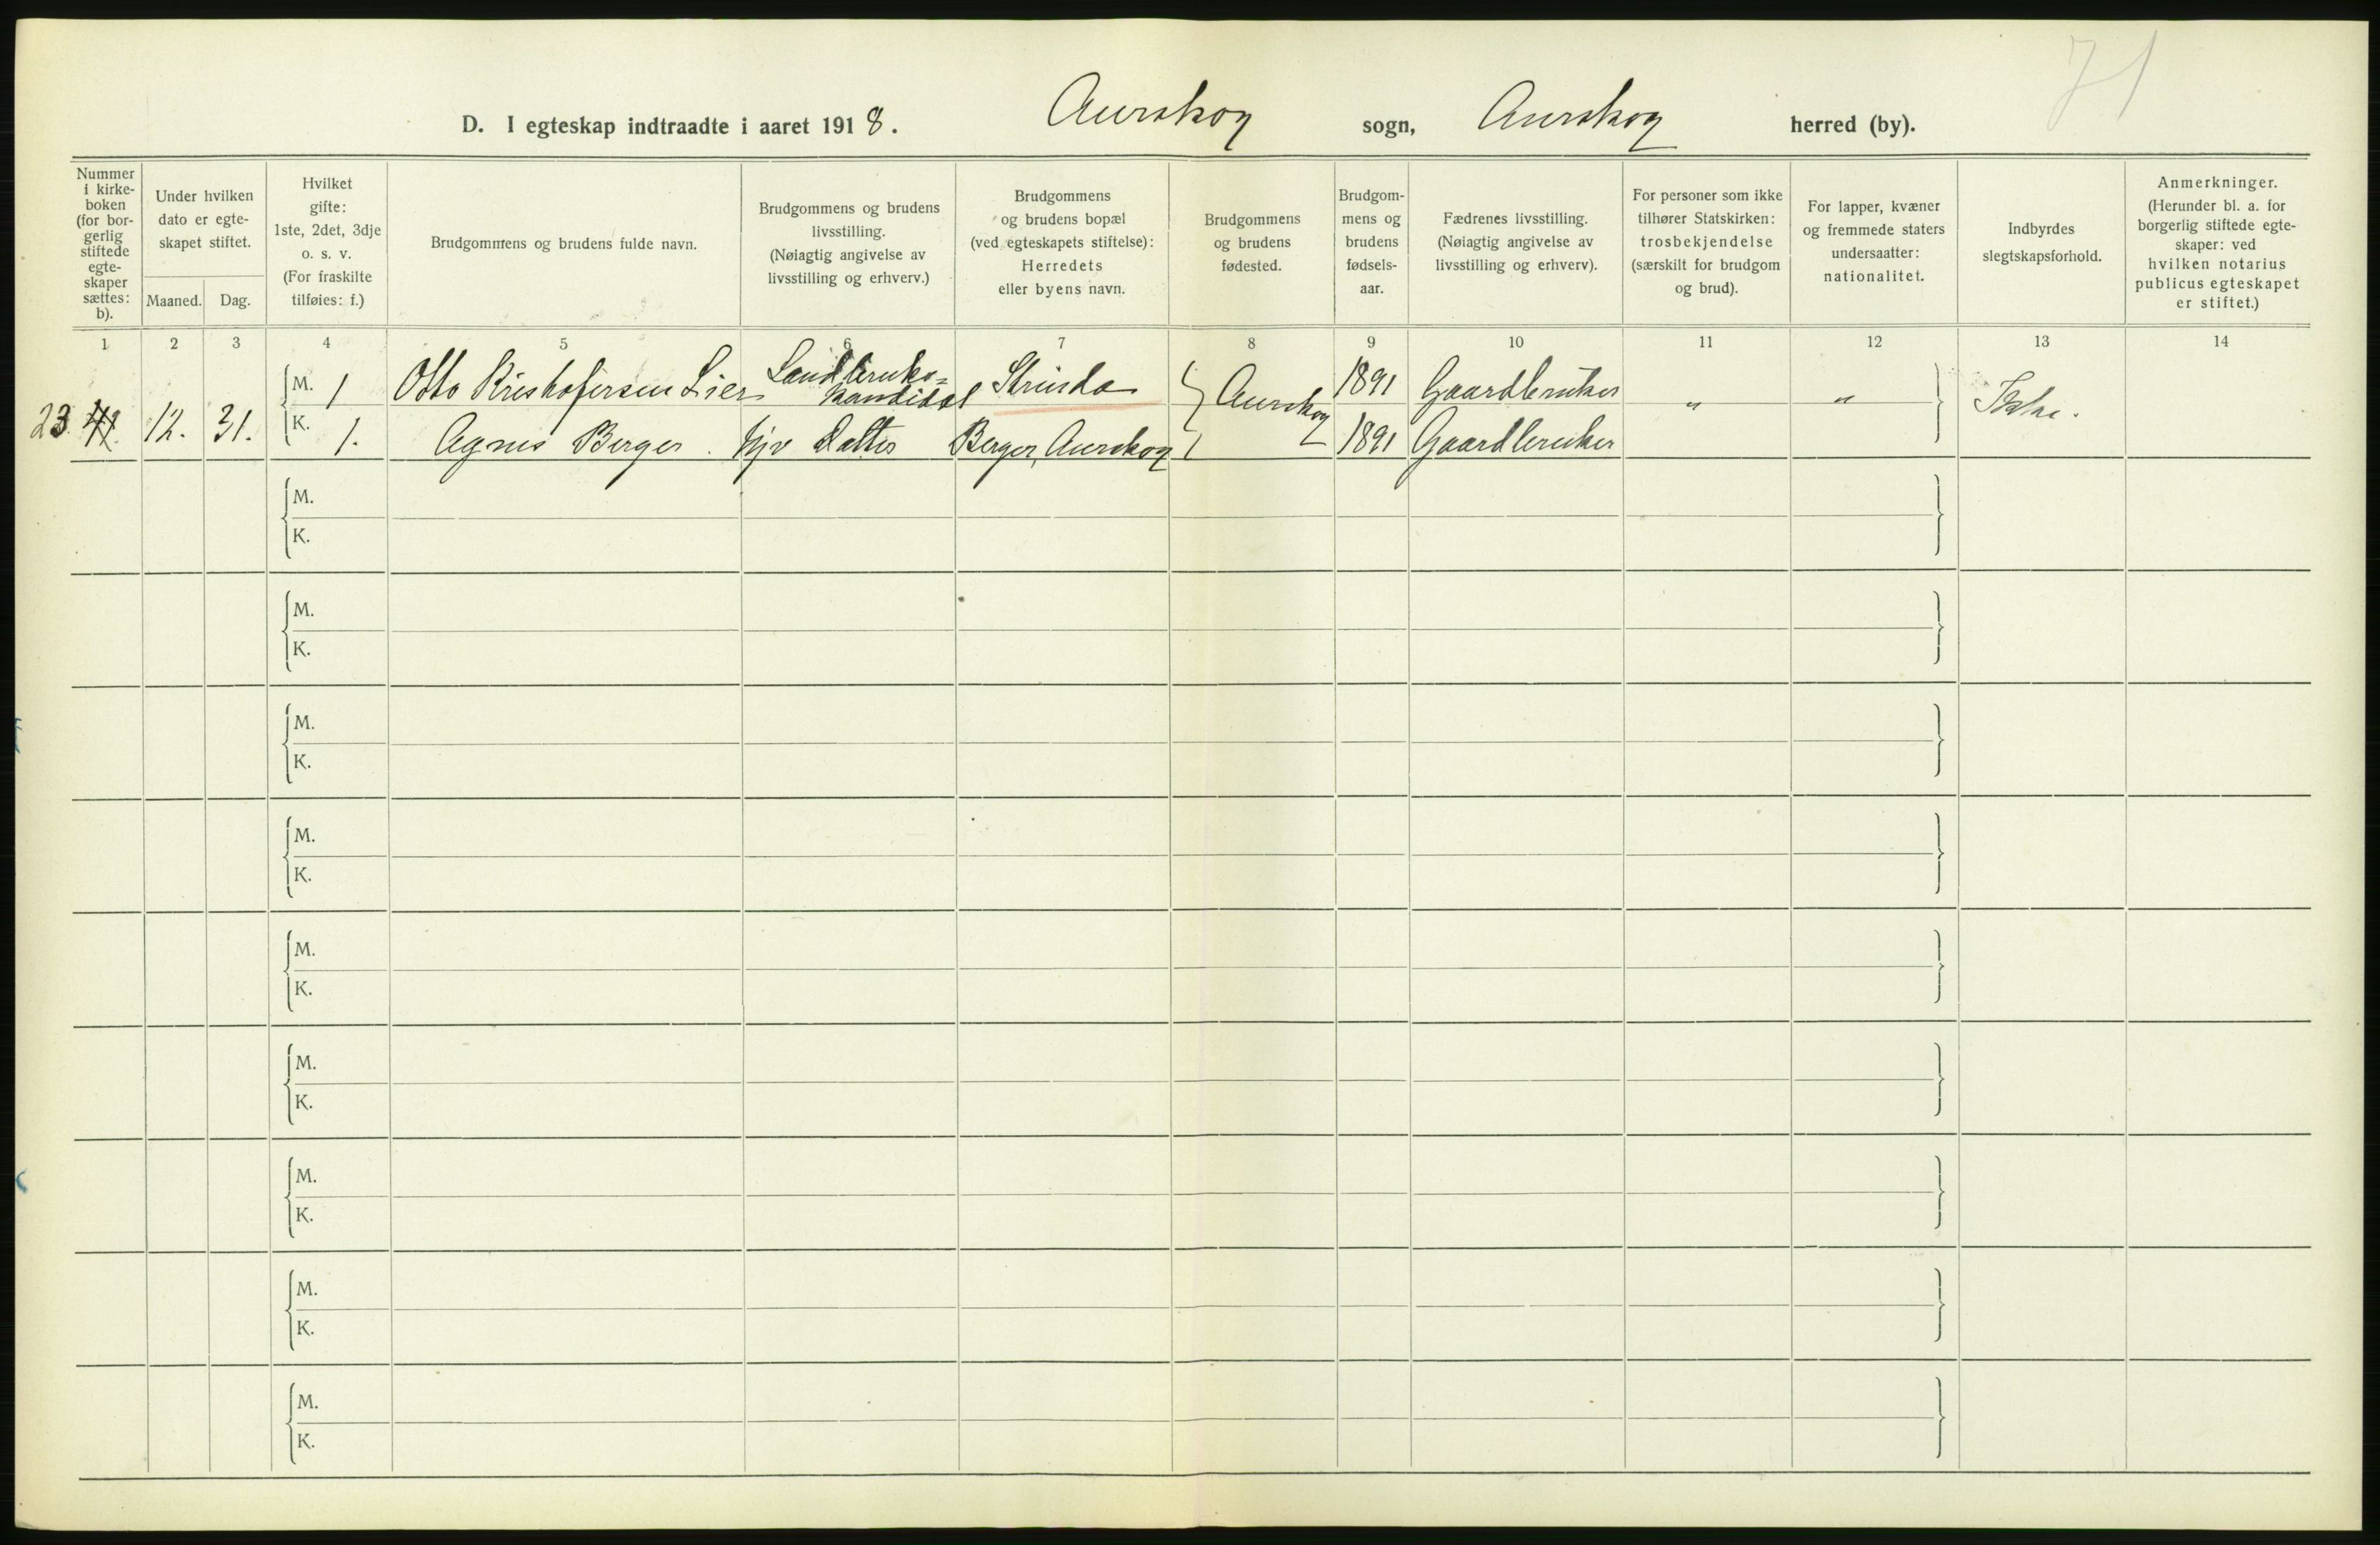 71
D. I egteskap indtraadte i aaret 1918. Aurskog sogn, Aurskog herred (by).
Nummer i kirke-boken (for bor-gerlig stiftede egte-skaper sættes: b).
Under hvilken dato er egte-skapet stiftet.
Maaned. Dag.
Hvilket gifte: 1ste, 2det, 3dje o. s. v. (For fraskilte tilføies: f.)
Brudgommens og brudens fulde navn.
Brudgommens og brudens livsstilling. (Nøiagtig angivelse av livsstilling og erhverv.)
Brudgommens og brudens bopæl (ved egteskapets stiftelse): Herredets eller byens navn.
Brudgommens og brudens fødested.
Brudgom-mens og brudens fødsels-aar.
Fædrenes livsstilling. (Nøiagtig angivelse av livsstilling og erhverv).
For personer som ikke tilhører Statskirken: trosbekjendelse (særskilt for brudgom og brud).
For lapper, kvæner og fremmede staters undersaatter: nationalitet.
Indbyrdes slegtskapsforhold.
Anmerkninger. (Herunder bl. a. for borgerlig stiftede egte-skaper: ved hvilken notarius publicus egteskapet er stiftet.)
1 2 3 4 5 6 7 8 9 10 11 12 13 14
23 41. 12. 31.
M. 1 Otto Kristofersen Lier Landbruks-kandidat Strinda Aurskog 1891 Gaardbruker " " Ikke.
K. 1. Agnes Berger. hjv Datter Berger, Aurskog 1891 Gaardbruker
M.
K.
M.
K.
M.
K.
M.
K.
M.
K.
M.
K.
M.
K.
M.
K.
M.
K.